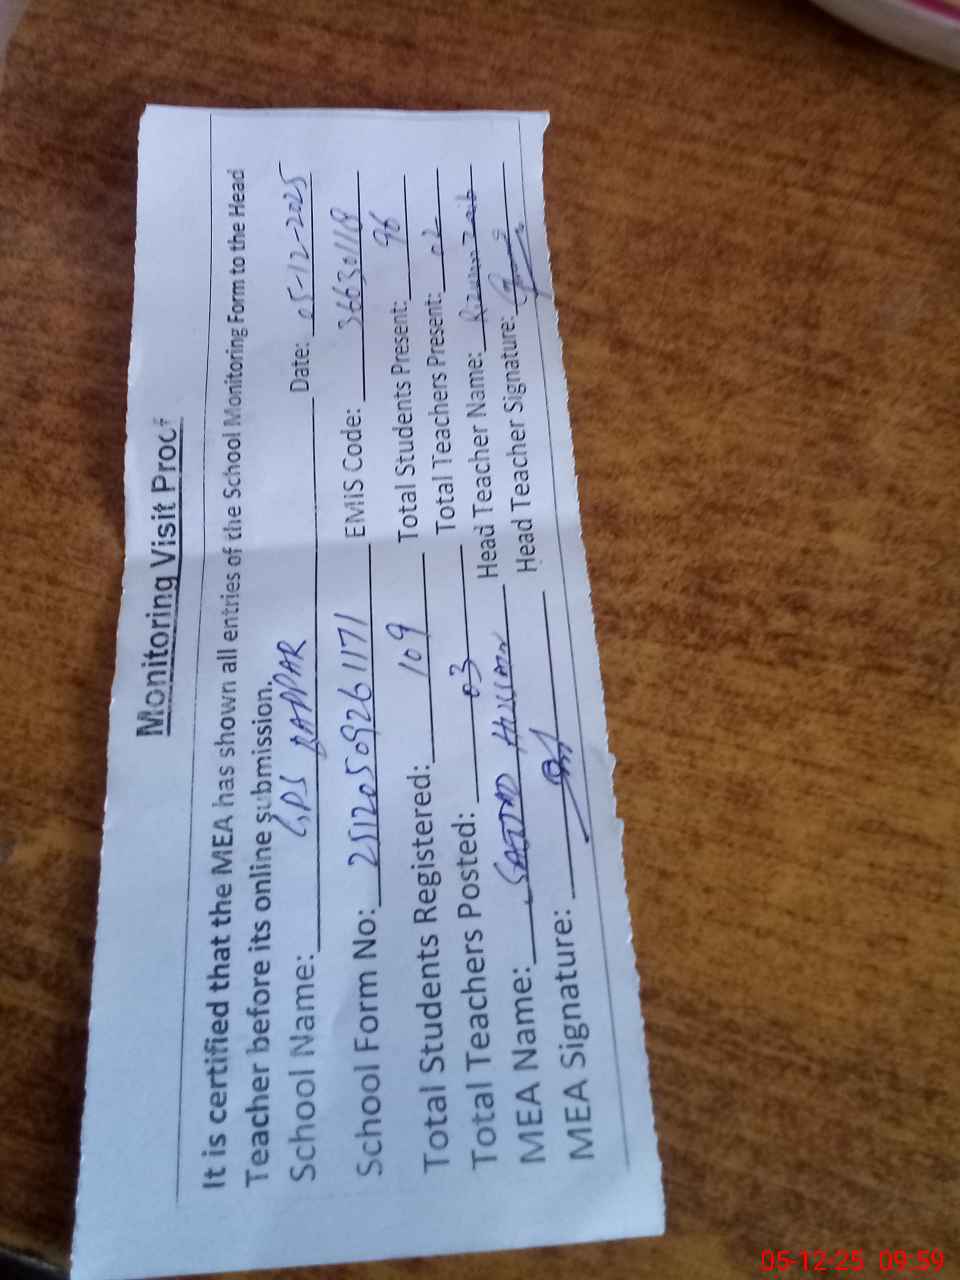 Monitoring Visit Proof
It is certified that the MEA has shown all entries of the School Monitoring Form to the Head
Teacher before its online submission.
School Name: GPS Date: 05-12-2025
School Form No: 25120509261171 EMIS Code: 366301118
Total Students Registered: 109 Total Students Present: 96
Total Teachers Posted: 03 Total Teachers Present: 02
MEA Name: SAJJAD HUSSAIN Head Teacher Name: Zaib
MEA Signature: Head Teacher Signature:
05-12-25 09:59